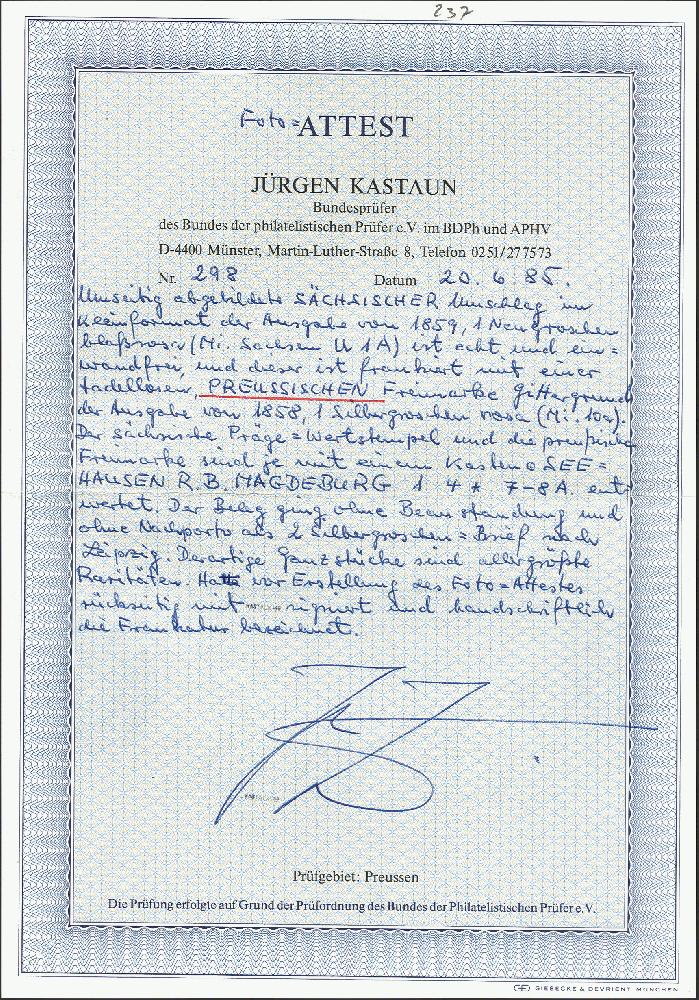 237
Foto=ATTEST
JÜRGEN KASTAUN
Bundesprüfer
des Bundes der philatelistischen Prüfer e.V. im BDPh und APHV
D-4400 Münster, Martin-Luther-Straße 8, Telefon 0251/277573
Nr. 298 Datum 20. 6. 85.
Umseitig abgebildete SÄCHSISCHER Umschlag im
Kleinformat der Ausgabe von 1859, 1 Neugroschen
blaßrosa (Mi. Sachsen U 1A) ist echt und ein=
wandfrei, und dieser ist frankiert mit einer
tadellosen, PREUSSISCHEN Freimarke Gittergrund
der Ausgabe von 1858, 1 Silbergroschen rosa (Mi. 10a).
Der sächsische Präge=Wertstempel und die preußische
Freimarke sind je mit einem Kasten o SEE=
HAUSEN R.B. MAGDEBURG 1 4 * 7-8 A. ent=
wertet. Der Beleg ging ohne Beanstandung und
ohne Nachporto als 2 Silbergroschen=Brief nach
Leipzig. Derartige Ganzstücke sind allergrößte
Raritäten. Hatte vor Erstellung des Foto=Attestes
rückseitig mit signiert und handschriftlich
die Frankatur bezeichnet.
Prüfgebiet: Preussen
Die Prüfung erfolgte auf Grund der Prüfordnung des Bundes der Philatelistischen Prüfer e.V.
GIESECKE & DEVRIENT MÜNCHEN